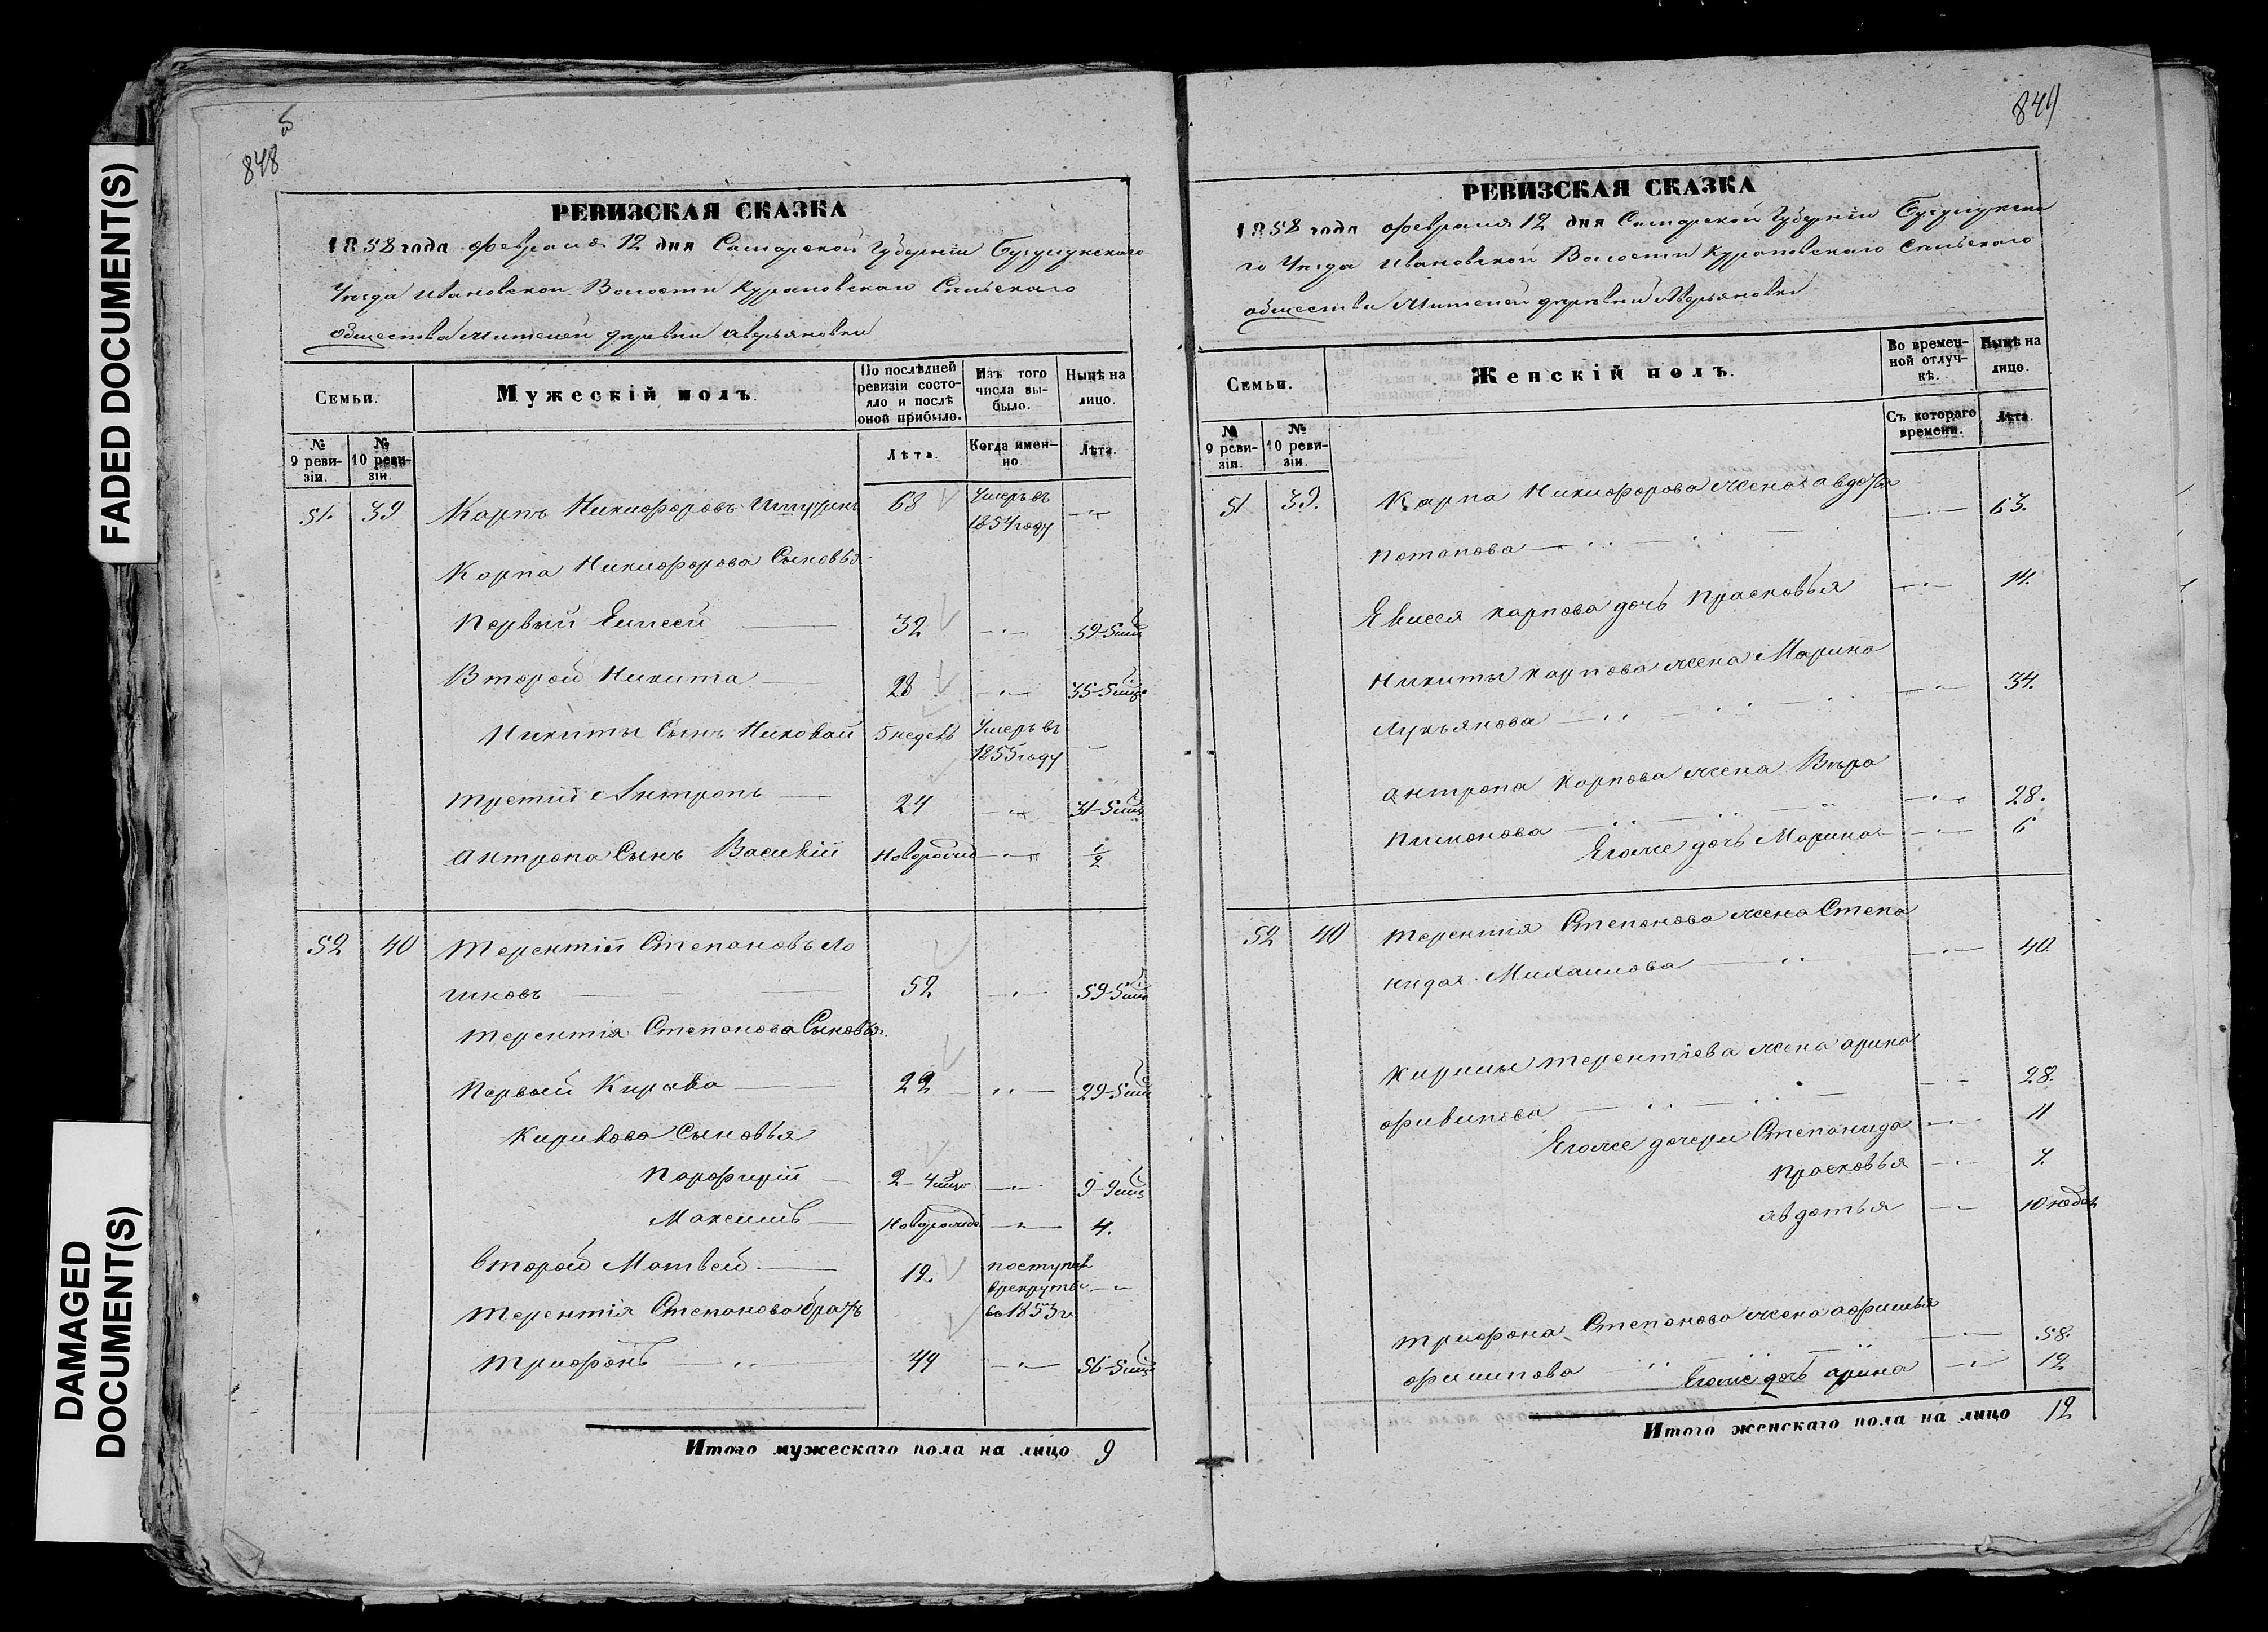 FADED DOCUMENT(S)
DAMAGED
DOCUMENT(S)
848 об
РЕВИЗСКАЯ СКАЗКА
1858 года февраля 12 дня Самарской Губернiи Бузулукскаго
Уезда Ивановской Волости Сельскаго
общества Жителей деревни Аверьяновки
Семьи.
Мужескій полъ.
По послѣдней
ревизіи состо-
яло и послѣ
оной прибыло.
Изъ того
числа вы-
было.
Нынѣ на
лицо.
№
9 реви-
зіи.
№
10 реви-
зіи.
Лѣта.
Когда имен-
но
Лѣта.
51. 39 Карпъ Никифоровъ 68 Умеръ въ
1854 году
Карпа Никифорова Сыновья
Первый Елисей 32 39-5 мѣс
Второй Никита 28 35-5 мѣс
Никиты Сынъ Николай 5 недель Умеръ въ
1855 году
Третiй Антропъ 24 31-5 мѣс
Антропа Сынъ Василiй новорожд 1/2
52 40 Терентiй Степановъ Ло
гиновъ 52 59-5 мѣс
Терентiя Степанова Сыновья
Первый Кирила 22 29-5 мѣс
Кирилова Сыновья
Порфирiй 2-4 мѣс 9-9 мѣс
Максимъ новорожд 4.
второй Матвей 19. поступилъ
врекруты
во 1853 г
Терентiя Степанова братъ
Трифонъ 49 56-5 мѣс
Итого мужескаго пола на лицо 9
849
РЕВИЗСКАЯ СКАЗКА
1858 года февраля 12 дня Самарской Губернiи Бузулукска
го Уезда Ивановской Волости Сельскаго
общества Жителей деревни Аверьяновки
Семьи.
Женскій полъ.
Во времен-
ной отлуч-
кѣ.
Нынѣ на
лицо.
№
9 реви-
зіи.
№
10 реви-
зіи.
Съ котораго
времени.
Лѣта.
51 39. Карпа Никифорова жена авдотья
Потапова 63.
Елисея Карпова дочь Прасковья 14.
Никиты Карпова жена Марина
Лукьянова 34.
Антропа Карпова жена Вѣра
Пименова 28.
Егоже дочь Марина 6
52 40 Терентiя Степанова жена Степа
нида Михаилова 40.
Кирилы Терентiева жена арина
филипова 28.
Егоже дочери Степанида 11
Прасковья 7.
авдотья 10 недел
Трифона Степанова жена афимья
филипова 58.
Егоже дочь арина 19
Итого женскаго пола на лицо 12